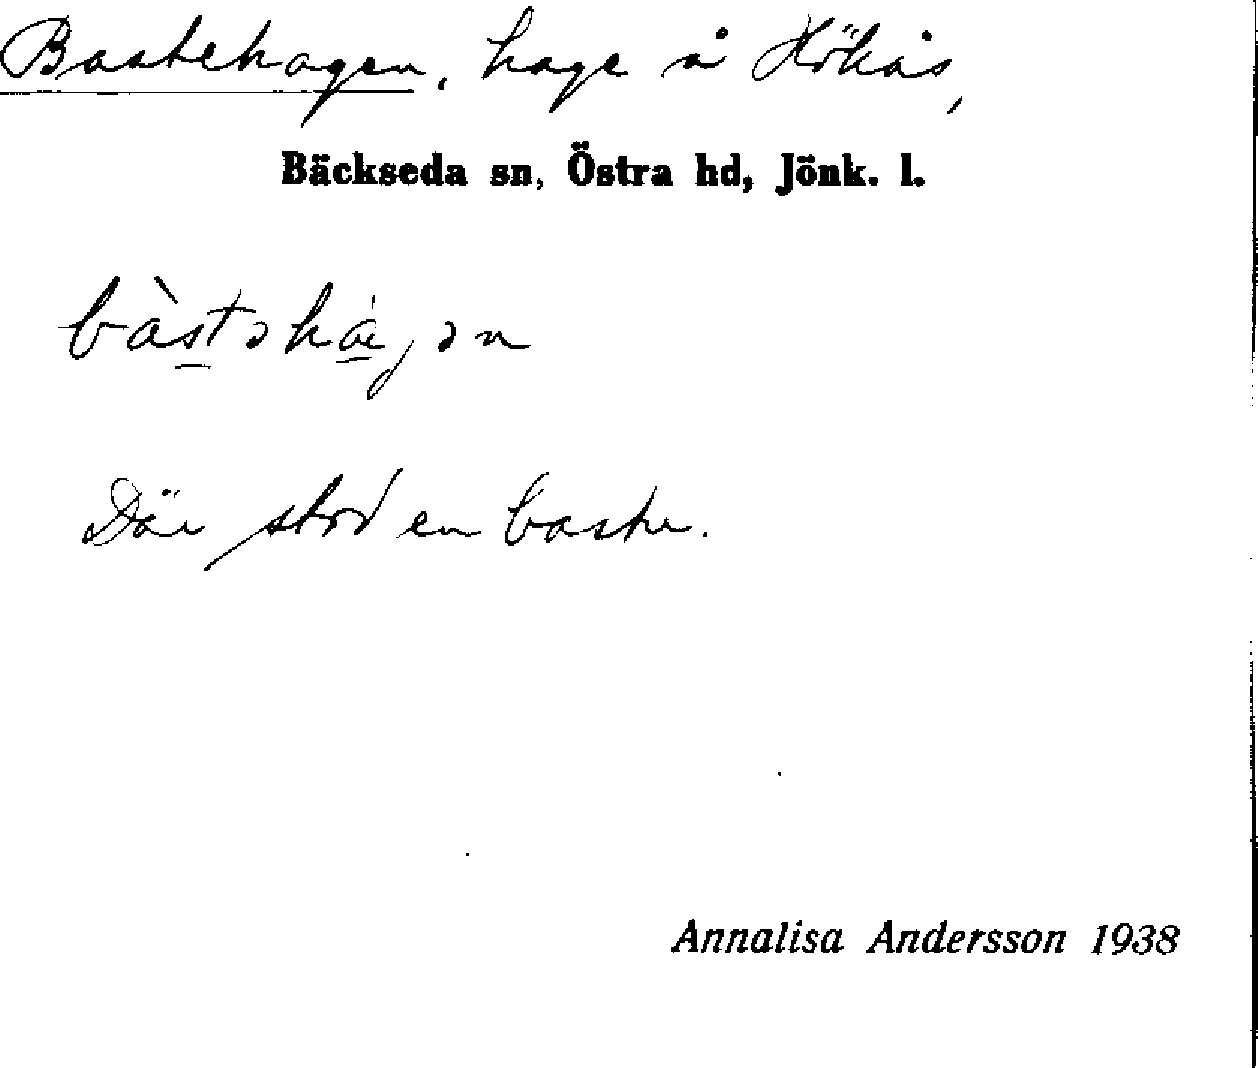 Bastehagen, hage å Hökås,
Bäckseda sn, Östra hd, Jönk. l.
bàstəhá̱gən
Där stod en bastu.
Annalisa Andersson 1938